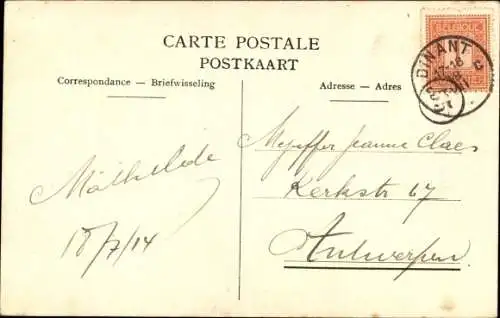 CARTE POSTALE
POSTKAART
Correspondance — Briefwisseling
Adresse — Adres
BELGIQUE
DINANT
Mathilde
18/7/14
Mejuffer Jeanne Claes
Kerkstr 67
Antwerpen